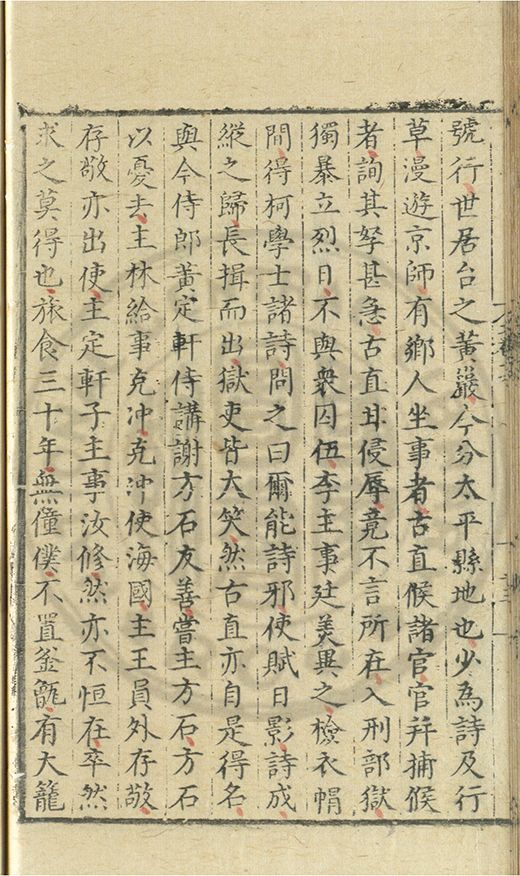 號行世居台之黃巖今分太平縣地也少為詩及行
草漫遊京師有鄉人坐事者古直候諸官官并捕候
者詢其孥甚急古直甘侵辱竟不言所在入刑部獄
獨暴立烈日不與衆囚伍李主事廷美異之檢衣帽
間得柯學士諸詩問之曰爾能詩邪使賦日影詩成
縱之歸長揖而出獄吏皆大笑然古直亦自是得名
與今侍郎黃定軒侍講謝方石友善嘗主方石方石
以憂去主林給事克冲克冲使海國主王員外存敬
存敬亦出使主定軒子主事汝修然亦不恒在卒然
求之莫得也旅食三十年無僮僕不置釜甑有大籠